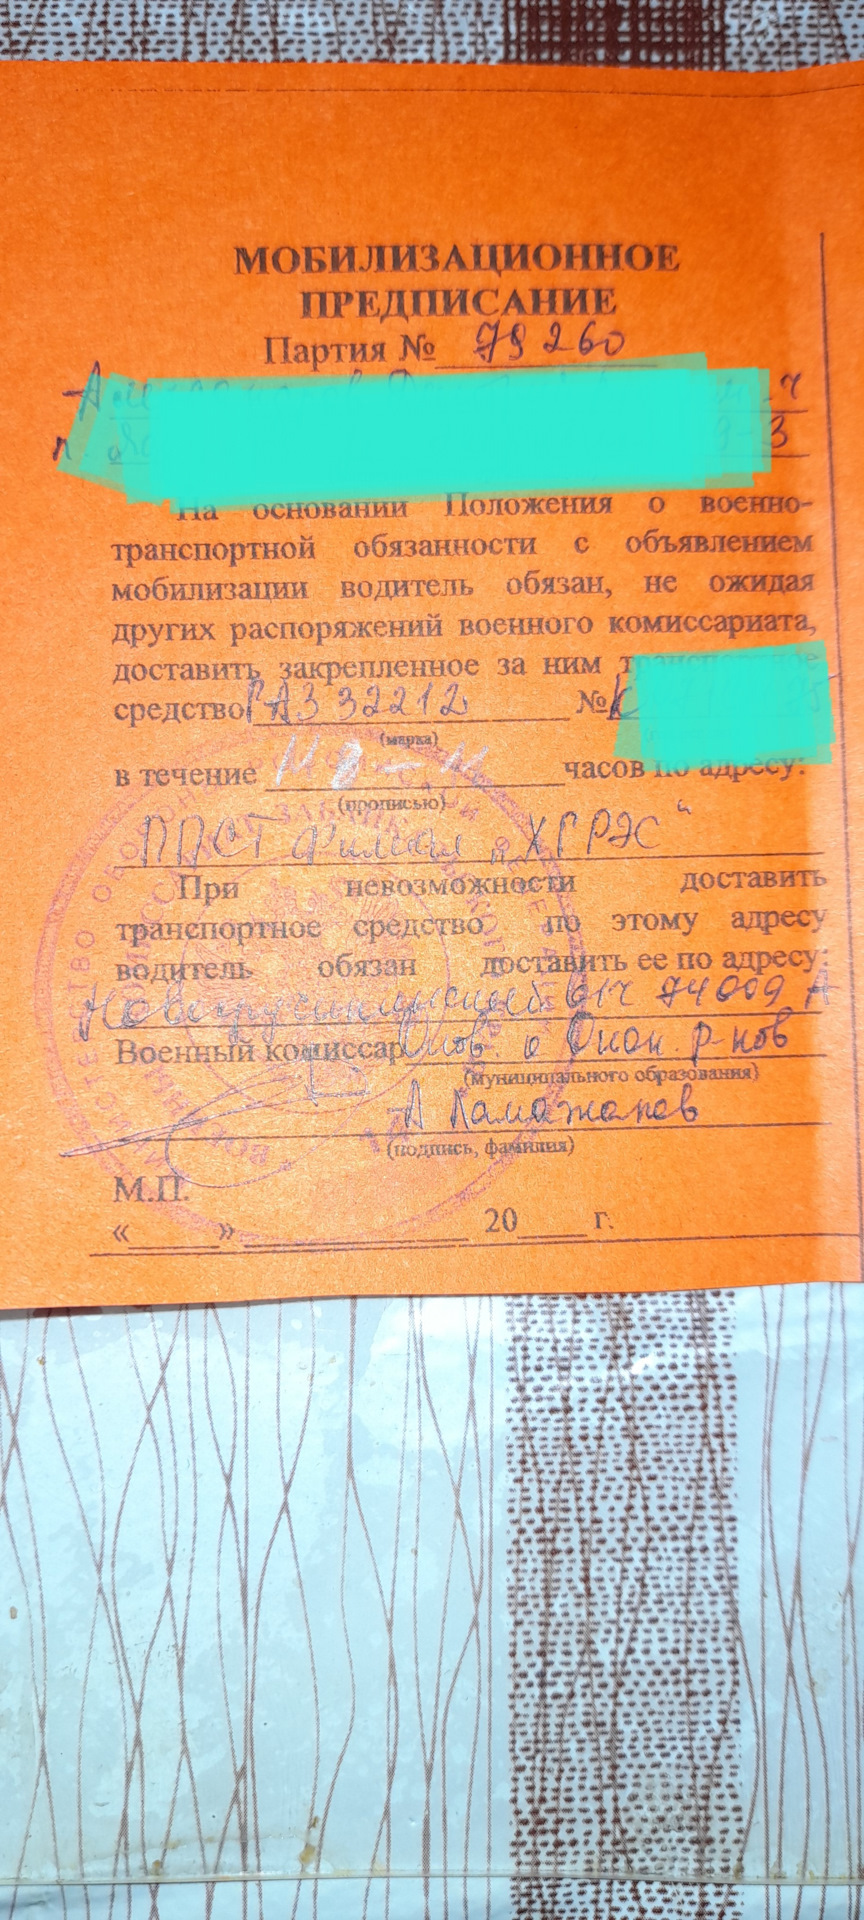 МОБИЛИЗАЦИОННОЕ
ПРЕДПИСАНИЕ
Партия № 79260
На основании Положения о военно-
транспортной обязанности с объявлением
мобилизации водитель обязан, не ожидая
других распоряжений военного комиссариата,
доставить закрепленное за ним транспортное
средство ГАЗ 32212 № К
(марка)
в течение часов по адресу:
(прописью)
ППСТ Филиал „ХГРЭС“
При невозможности доставить
транспортное средство по этому адресу
водитель обязан доставить ее по адресу:
в/ч 74009 А
Военный комиссар Олов. и Онон. р-нов
(муниципального образования)
А
(подпись, фамилия)
М.П.
«____» __________ 20___ г.